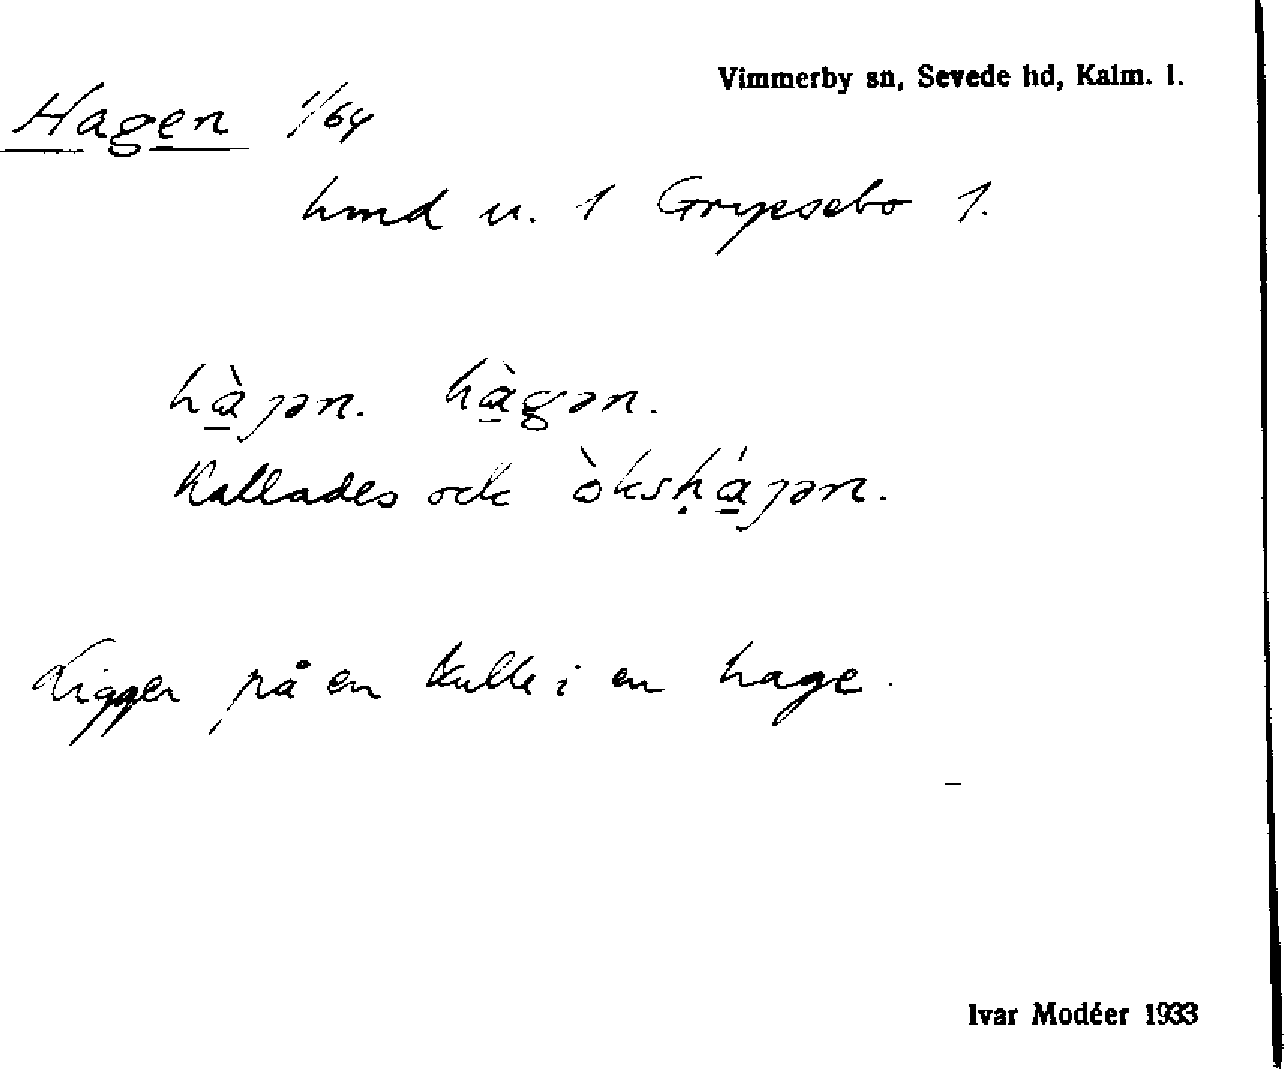 Vimmerby sn, Sevede hd, Kalm. l.
Hagen 1/64
hmd u. 1 Grypsebo 1.
hàȷən. hàgən.
Kallades ock òksḥáȷən.
Ligger på en kulle i en hage.
Ivar Modéer 1933